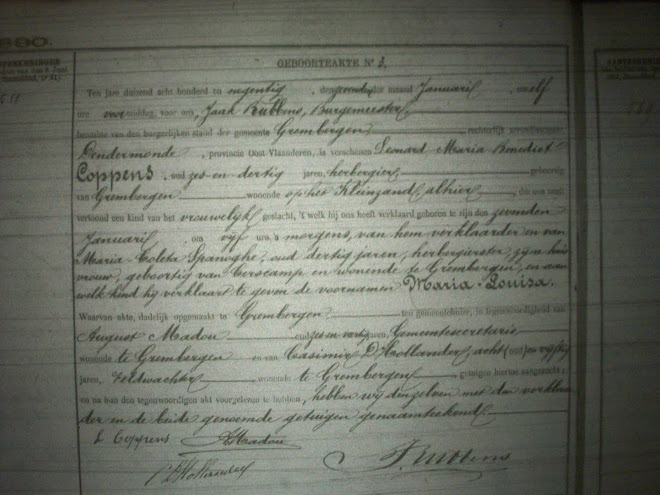 1890.
GEBOORTEAKTE Nr 3.
Ten jare duizend acht honderd en negentig, den maand Januarij, twelf
ure voormiddag, voor ons, Jaak Rubbens, Burgemeester
beamte van den burgerlijken stand der gemeente Grembergen rechterlijk arrondissement
Dendermonde, provincie Oost-Vlaanderen, is verschenen Leonard Maria Benedict
Coppens, oud zes en dertig jaren, herbergier geboortig
van Grembergen woonende op het Kleinzand alhier, die ons heeft
vertoond een kind van het vrouwelijk geslacht, 't welk hij ons heeft verklaard geboren te zijn den zevenden
Januarij, om vijf ure 's morgens, van hem verklaarder en van
Maria Coleta Spanoghe, oud dertig jaren, herbergierster, zijne huis
vrouw, geboortig van Overscamp en wonende te Grembergen, en aan
welk kind hij verklaart te geven de voornamen Maria-Louisa.
Waarvan akte, dadelijk opgemaakt te Grembergen ten gemeentehuize, in tegenwoordigheid van
August Madou oud zes en veertig jaren, Gemeentesecretaris
woonende te Grembergen en van Casimir D'Hollander, acht oud en vijftig
jaren, Veldwachter woonende te Grembergen getuigen hiertoe aangezocht;
en na hun den tegenwoordigen akt voorgelezen te hebben, hebben wij dezelven met den verklaar
der en de beide genoemde getuigen genaamteekend
L Coppens AMadou
C D'Hollander J. Rubbens